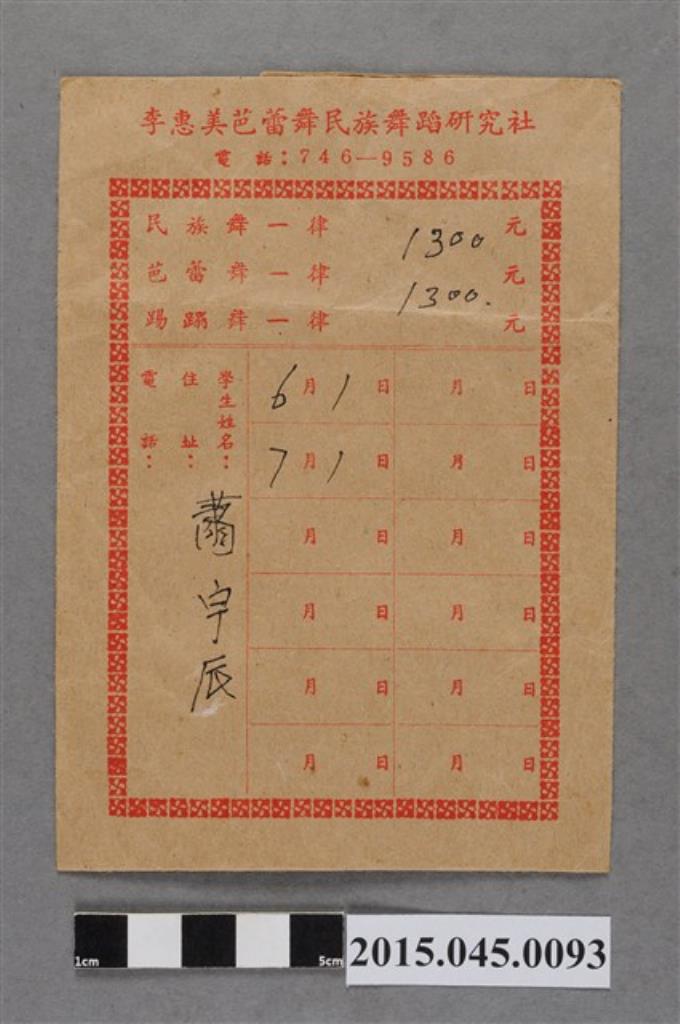 李惠美芭蕾舞民族舞蹈研究社
電話：746—9586
民族舞一律 1300 元
芭蕾舞一律 1300. 元
踢蹋舞一律 元
學生姓名：蕭宇辰
住址：
電話：
6月1日 月 日
7月1日 月 日
月 日 月 日
月 日 月 日
月 日 月 日
月 日 月 日
1cm 5cm
2015.045.0093